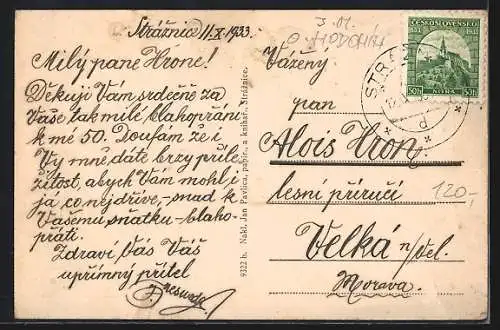 Strážnice 11/X 1933.
Milý pane Hrone!
Děkuji Vám srdečně za
Vaše tak milé blahopřání
k mé 50. Doufám že i
Vy mně dáte brzy příle-
žitost, abych Vám mohl i
já co nejdříve, snad k
Vašemu sňatku - blaho-
přáti.
Zdraví Vás Váš
upřímný přítel
9322 h. Nakl. Jan Pavlica, papír. a knihař. Strážnice.
O. HODONÍN
ČESKOSLOVENSKO
833 1933
50h NITRA 50h
STRÁŽ
d
Vážený
pan
Alois Hron.
lesní příručí
120,-
Velká n/Vel.
Morava.